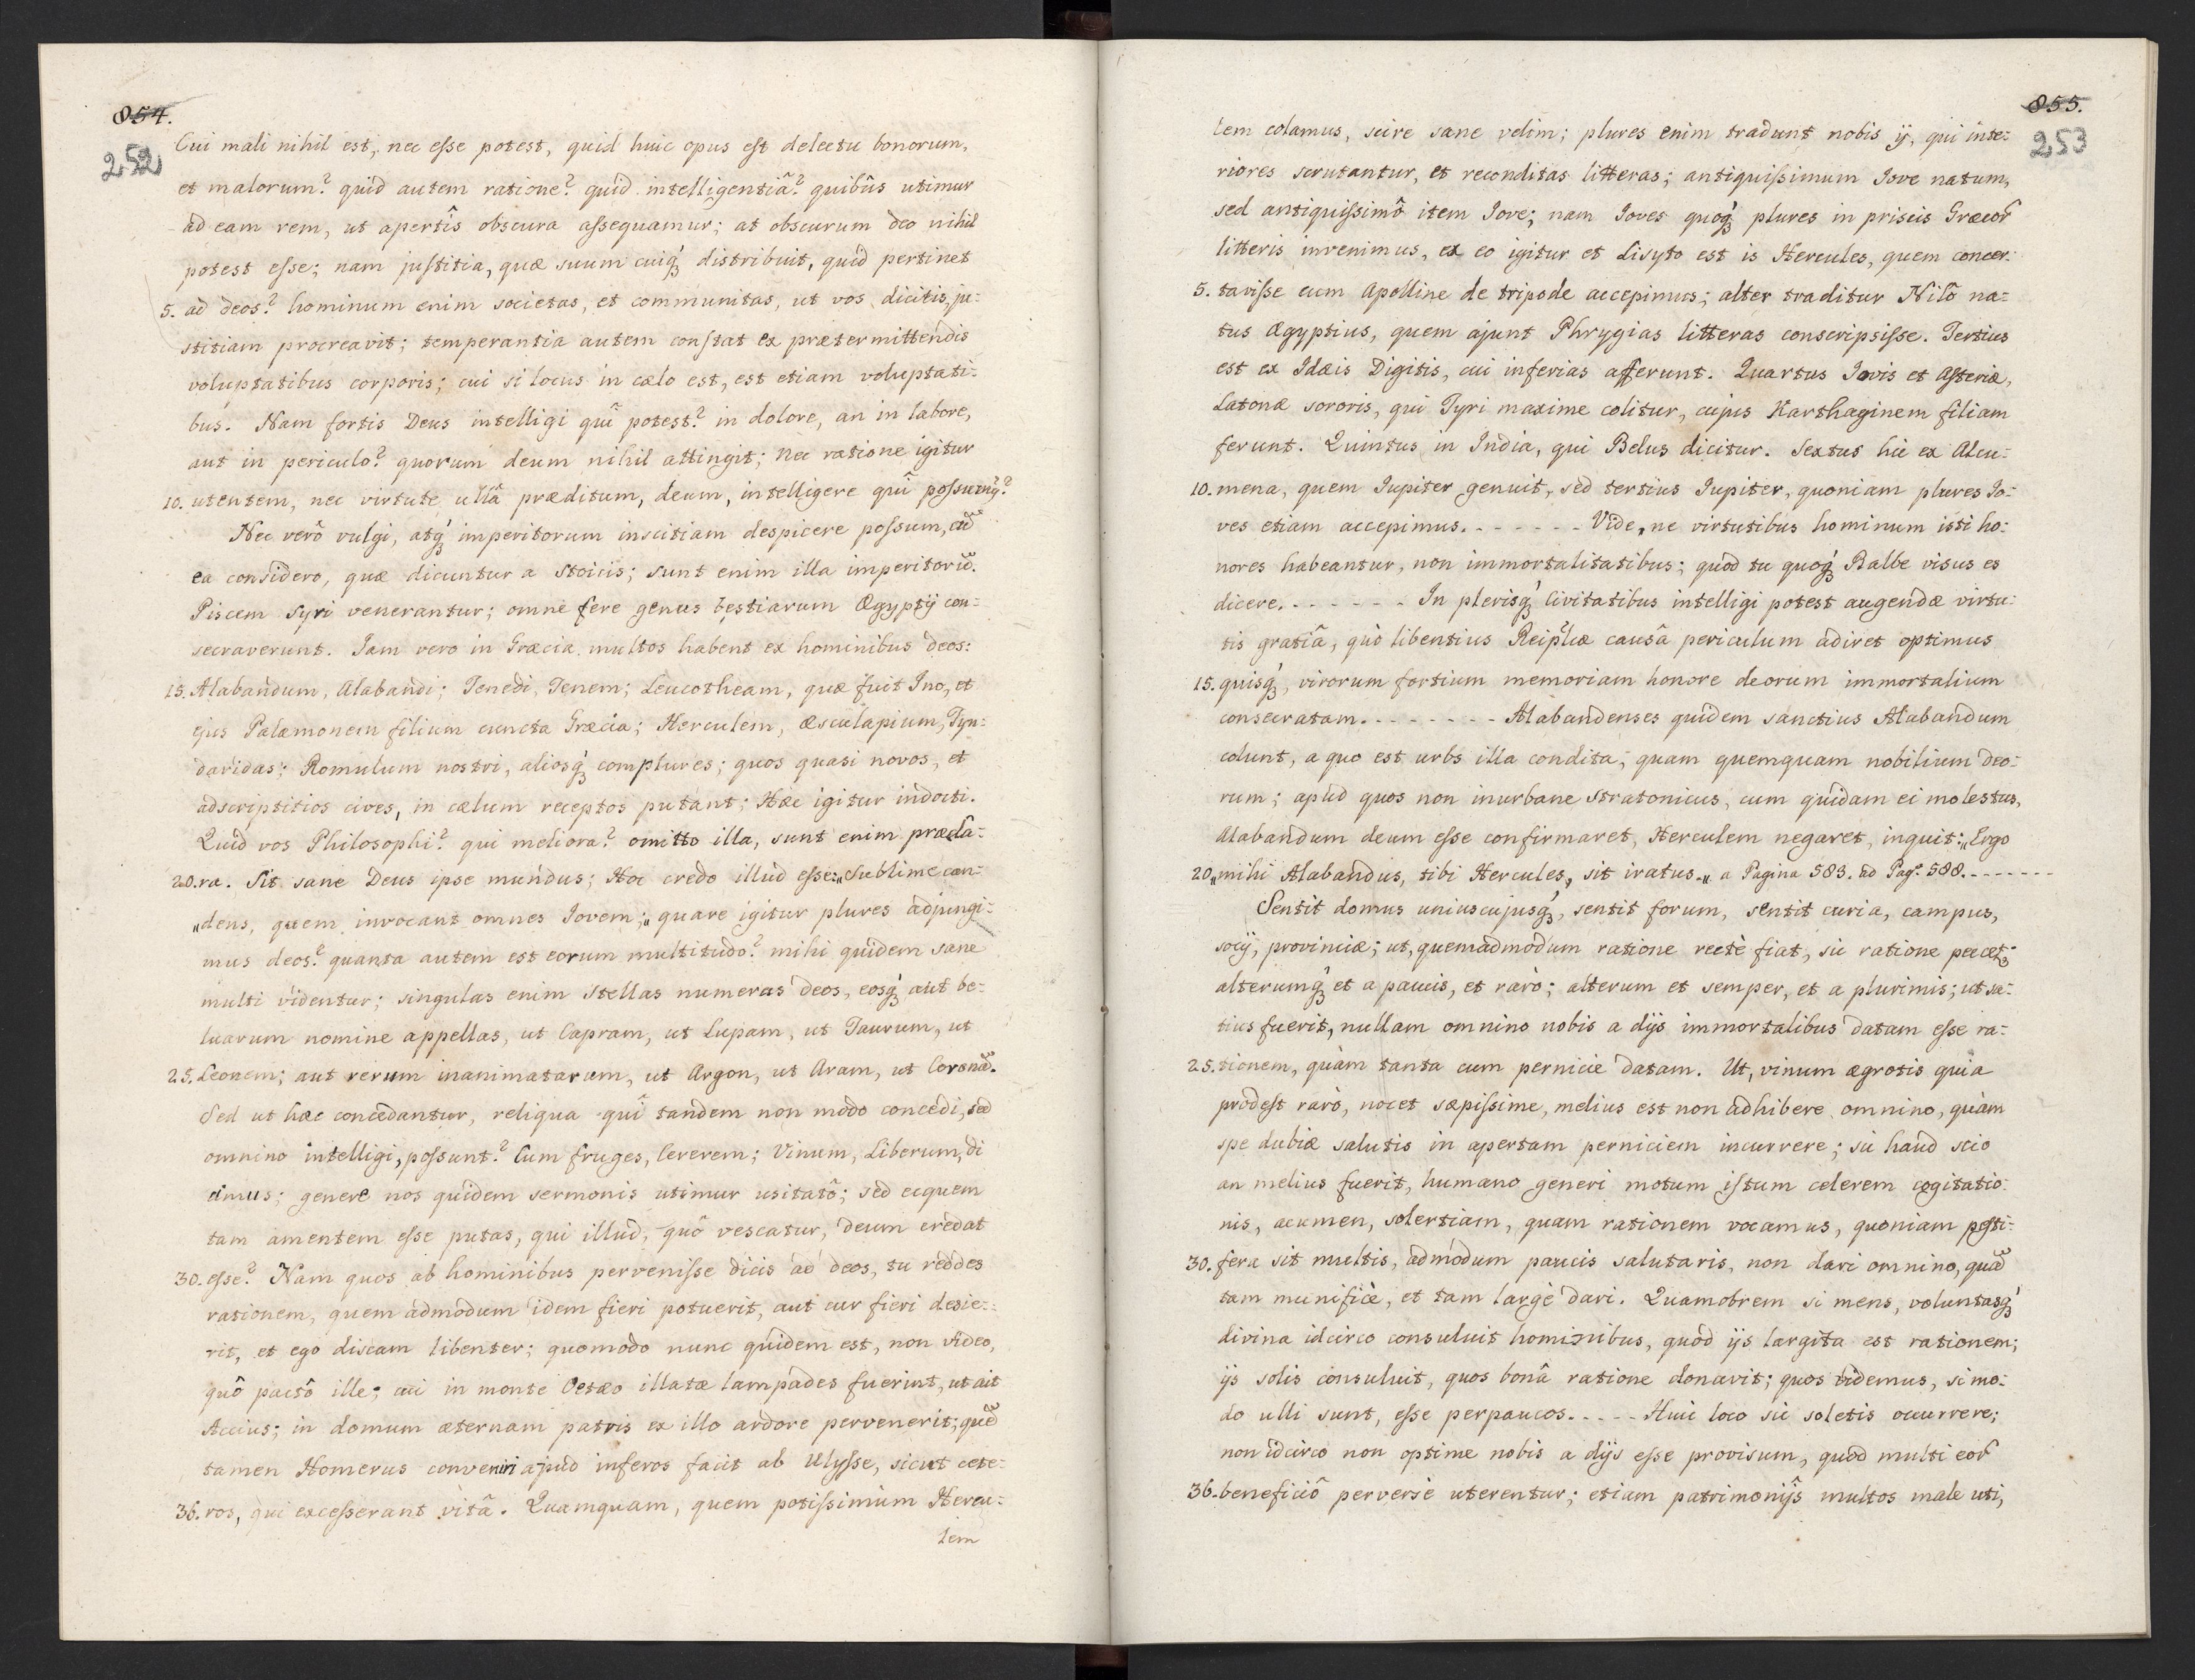 854.
252
Cui mali nihil est, nec esse potest, quid huic opus est delectu bonorum,
et malorum? quid autem ratione? quid intelligentiâ? quibus utimur
ad eam rem, ut apertîs obscura assequamur; at obscurum deo nihil
potest esse; nam justitia, quæ suum cuiqꝫ distribuit, quid pertinet
5. ad deos? hominum enim societas, et communitas, ut vos dicitis, ju=
stitiam procreavit; temperantia autem constat ex prætermittendis
voluptatibus corporis; cui si locus in cælo est, est etiam voluptati=
bus. Nam fortis Deus intelligi quî potest? in dolore, an in labore,
aut in periculo? quorum deum nihil attingit; nec ratione igitur
10. utentem, nec virtute ullâ præditum, deum, intelligere quî possumꝰ?
Nec verò vulgi, atqꝫ imperitorum inscitiam despicere possum, cũ
ea considero, quæ dicuntur a Stoicis; sunt enim illa imperitoriũ.
Piscem Syri venerantur; omne fere genus bestiarum Ægyptij con=
secraverunt. Jam vero in Græcia multos habent ex hominibus deos:
15. Alabandum, Alabandi; Tenedi, Tenem; Leucotheam, quæ fuit Ino, et
ejus Palæmonem filium cuncta Græcia; Herculem, Æsculapium, Tyn=
daridas; Romulum nostri, aliosqꝫ complures; quos quasi novos, et
adscriptitios cives, in cælum receptos putant; Hæc igitur indocti.
Quid vos Philosophi? qui meliora? omitto illa, sunt enim præcla=
20. ra. Sit sane Deus ipse mundus; Hoc credo illud esse: „Sublime can=
„dens, quem invocant omnes Jovem;„ quare igitur plures adjungi=
mus deos? quanta autem est eorum multitudo? mihi quidem sane
multi videntur; singulas enim stellas numeras deos, eosqꝫ aut be=
luarum nomine appellas, ut Capram, ut Lupam, ut Taurum, ut
25. Leonem; aut rerum inanimatarum, ut Argon, ut Aram, ut Coronã.
Sed ut hæc concedantur, reliqua quî tandem non modo concedi, sed
omnino intelligi, possunt? Cum fruges, Cererem; Vinum, Liberum, di
cimus; genere nos quidem sermonis utimur usitatô; sed ecquem
tam amentem esse putas, qui illud, quô vescatur, deum credat
30. esse? Nam quos ab hominibus pervenisse dicis ad deos, tu reddes
rationem, quem admodum idem fieri potuerit, aut cur fieri desie=
rit, et ego discam libenter; quomodo nunc quidem est, non video,
quô pactô ille; cui in monte Oetæo illatæ lampades fuerint, ut ait
Accius; in domum æternam patris ex illo ardore pervenerit; quẽ
tamen Homerus conveniri apud inferos facit ab Ulysse, sicut cete=
36. ros, qui excesserant vitâ. Quamquam, quem potissimum Hercu=
lem
855.
253
lem colamus, scire sane velim; plures enim tradunt nobis ij, qui inte=
riores scrutantur, et reconditas litteras; antiquissimum Jove natum,
sed antiquissimô item Jove; nam Joves quoqꝫ plures in priscis Græcoꝝ
litteris invenimus, ex eo igitur et Lisyto est is Hercules, quem concer=
5. tavisse cum Apolline de tripode accepimus; alter traditur Nilô na=
tus Ægyptius, quem ajunt Phrygias litteras conscripsisse. Tertius
est ex Idæis Digitis, cui inferias afferunt. Quartus Jovis et Asteriæ,
Latonæ sororis, qui Tyri maxime colitur, cujus Karthaginem filiam
ferunt. Quintus in India, qui Belus dicitur. Sextus hic ex Alcu=
10. mena, quem Jupiter genuit, sed tertius Jupiter, quoniam plures Jo=
ves etiam accepimus. - - - - - - - Vide, ne virtutibus hominum isti ho=
nores habeantur, non immortalitatibus; quod tu quoqꝫ Balbe visus es
dicere. - - - - - - - In plerisqꝫ Civitatibus intelligi potest augendæ virtu=
tis gratiâ, quò libentius Reiplicæ causâ periculum adiret optimus
15. quisqꝫ, virorum fortium memoriam honore deorum immortalium
consecratam. - - - - - - - - Alabandenses quidem sanctius Alabandum
colunt, a quo est urbs illa condita, quam quemquam nobilium deo=
rum; apud quos non inurbane Stratonicus, cum quidam ei molestus,
Alabandum deum esse confirmaret, Herculem negaret, inquit: „Ergo
20. „mihi Alabandus, tibi Hercules, sit iratus.„ a Pagina 583. ad Pag. 588. - - - - - - -
Sentit domus uniuscujusqꝫ, sentit forum, sentit curia, campus,
socij, provinciæ; ut, quemadmodum ratione rectè fiat, sic ratione peccetꝫ;
alterumqꝫ et a paucis, et rarò; alterum et semper, et a plurimis; ut sa=
tius fuerit, nullam omnino nobis a dijs immortalibus datam esse ra=
25. tionem, quàm tanta cum pernicie datam. Ut, vinum ægrotis quia
prodest rarò, nocet sæpissime, melius est non adhibere omnino, quàm
spe dubiæ salutis in apertam perniciem incurrere; sic haud scio
an melius fuerit, humano generi motum istum celerem cogitatio=
nis, acumen, solertiam, quam rationem vocamus, quoniam pesti=
30. fera sit multis, admodum paucis salutaris, non dari omnino, quã
tam munificè, et tam largè dari. Quamobrem si mens, voluntasqꝫ
divina idcirco consuluit hominibus, quod ijs largita est rationem;
ijs solis consuluit, quos bonâ ratione donavit; quos videmus, si mo=
do ulli sunt, esse perpaucos. - - - - - Huic loco sic soletis occurrere;
non idcirco non optime nobis a dijs esse provisum, quod multi eoꝝ
36. beneficiô perversè uterentur; etiam patrimonijs multos male uti,